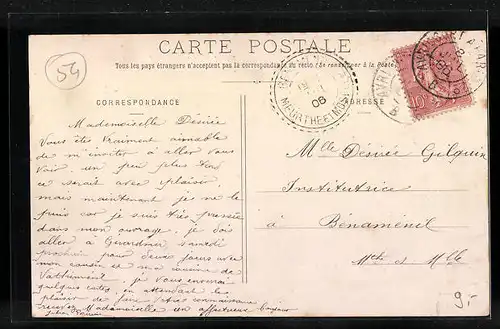 54
CARTE POSTALE
Tous les pays étrangers n'acceptent pas la correspondance au recto (Se renseigner à la Poste)
CORRESPONDANCE
ADRESSE
MEURTHE ET MOSELLE
06
10
Mademoiselle Désirée
Vous êtes vraiment aimable
de m'inviter à aller vous
voir, un peu plus tard
ce serait avec plaisir,
mais maintenant je ne le
puis car je suis très pressée
dans mon ouvrage, je dois
aller à Gérardmer samedi
prochain pour deux jours avec
mon cousin et ma cousine de
je vous enverrai
quelques cartes, en attendant le
plaisir de faire votre connaissance
recevez Mademoiselle un affectueux bonjour
Mlle Désirée Gilquin
Institutrice
à Bénaménil
Mthe et Mlle
9.-